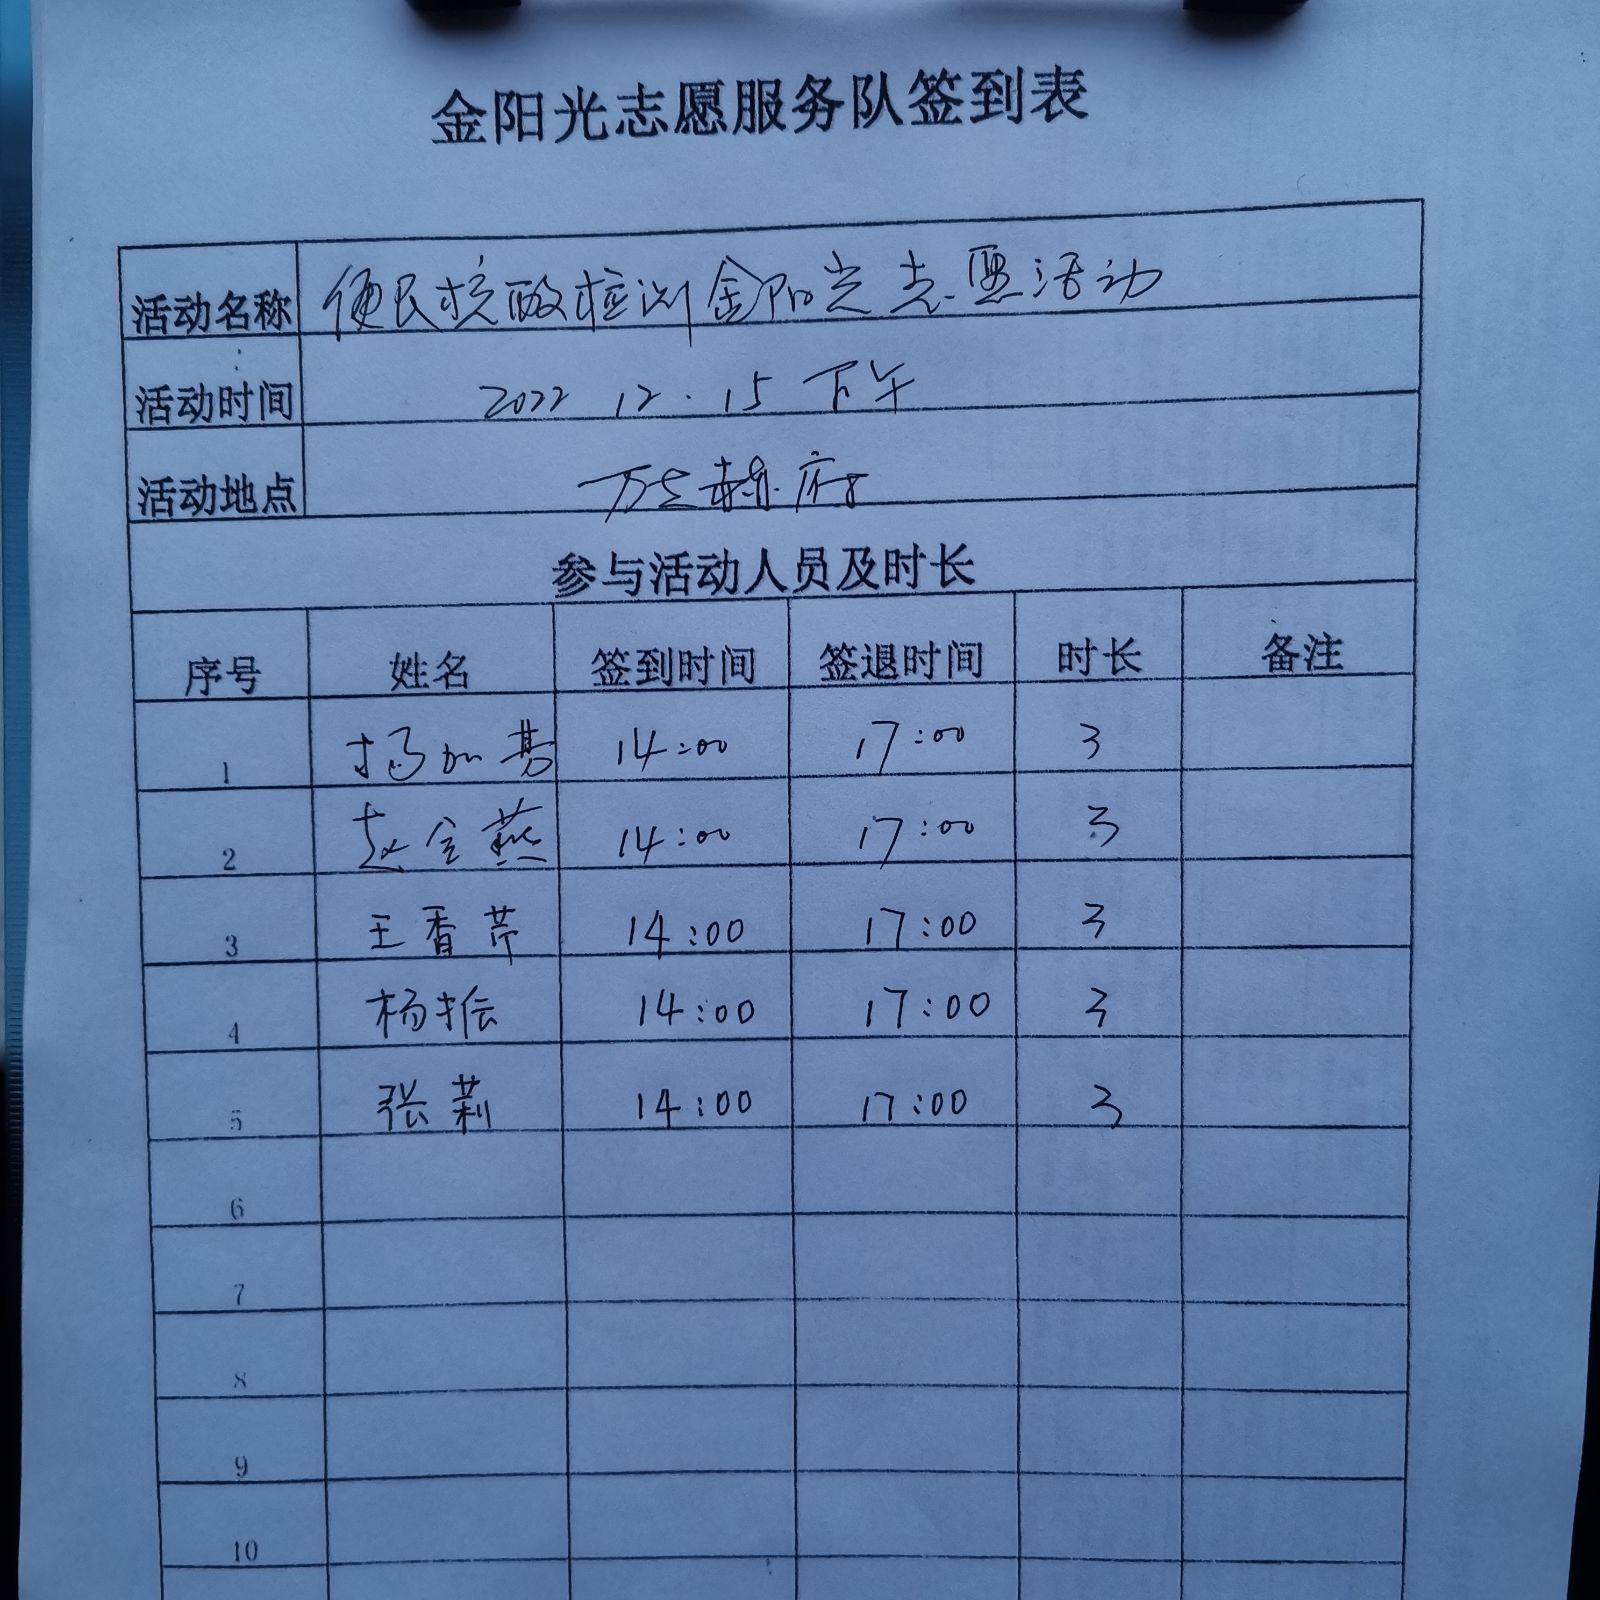 金阳光志愿服务队签到表
活动名称 便民核酸检测金阳光志愿活动
活动时间 2022 12.15 下午
活动地点 万兰赫府
参与活动人员及时长
序号 姓名 签到时间 签退时间 时长 备注
1 杨加 14:00 17:00 3
2 赵全燕 14:00 17:00 3
3 王香芹 14:00 17:00 3
4 杨振 14:00 17:00 3
5 张莉 14:00 17:00 3
6
7
8
9
10